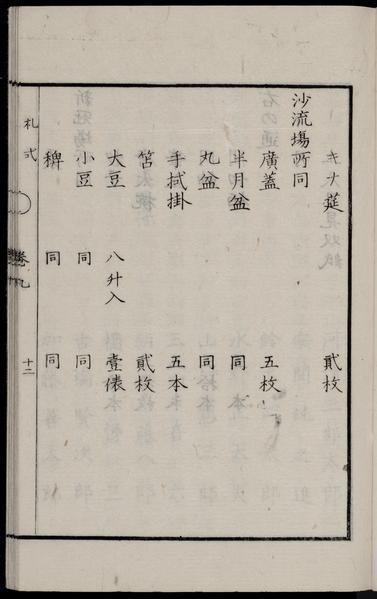 キナ莚　貳枚
沙流塲所同
廣蓋　五枚
半月盆　同
丸盆　同
手拭掛　五本
筥　貳枚
大豆　八升入　壹俵
小豆　同　同
稗　同　同
礼式　巻九　十二